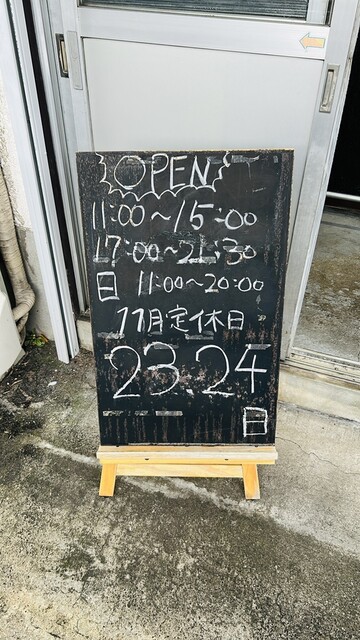 OPEN
11:00～15:00
17:00～21:30
日 11:00～20:00
11月定休日
23.24
日